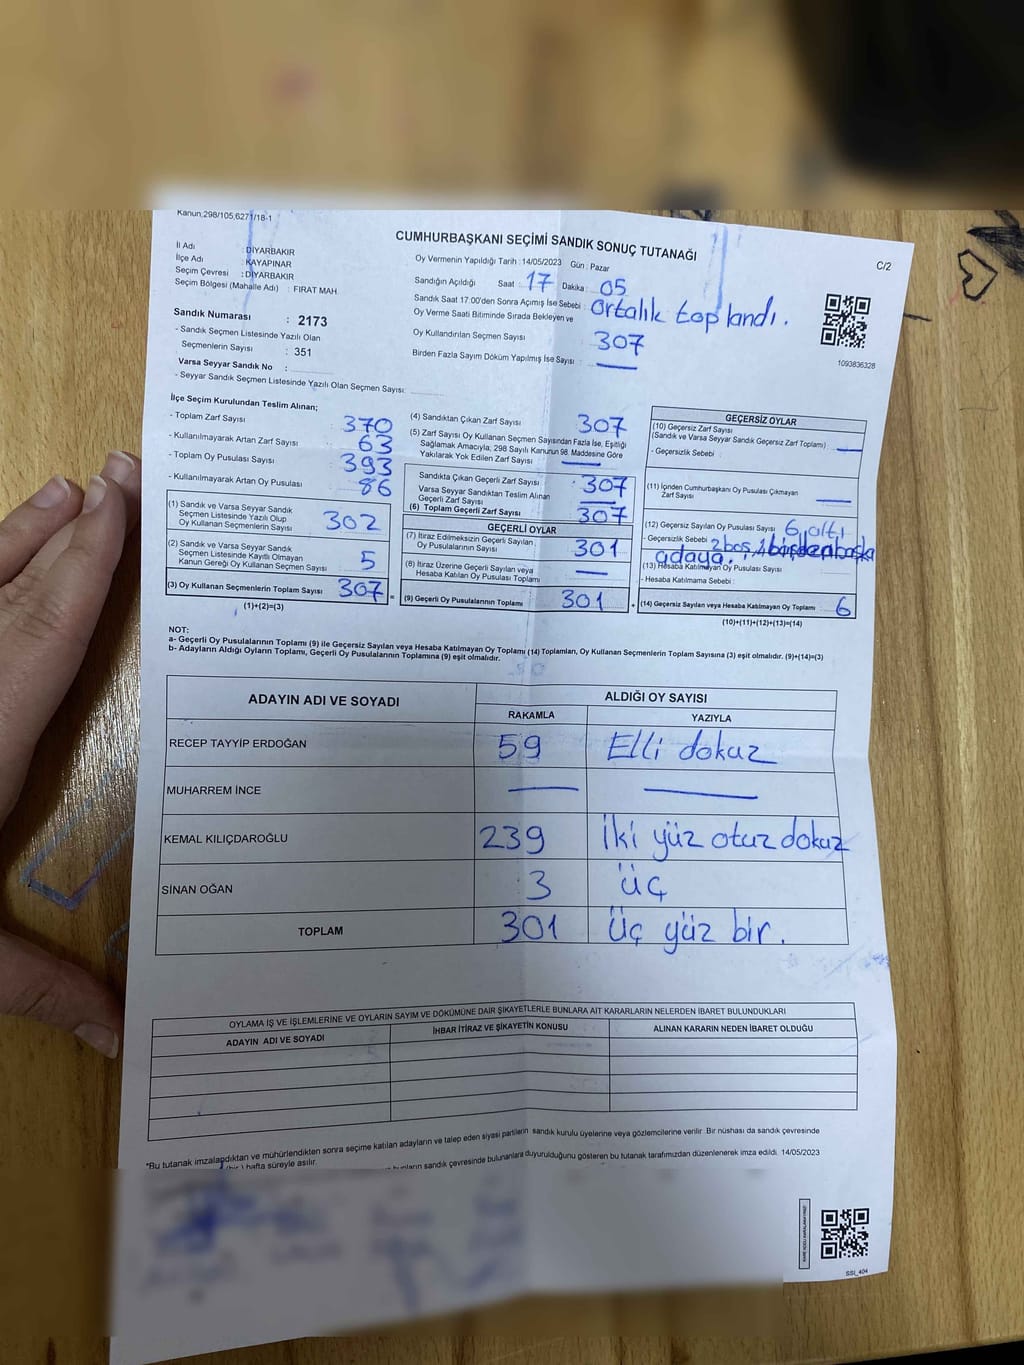 Kanun,298/105,6271/18-1
CUMHURBAŞKANI SEÇİMİ SANDIK SONUÇ TUTANAĞI
C/2
İl Adı : DİYARBAKIR
İlçe Adı : KAYAPINAR
Seçim Çevresi : DİYARBAKIR
Seçim Bölgesi (Mahalle Adı) : FIRAT MAH.
Sandık Numarası : 2173
- Sandık Seçmen Listesinde Yazılı Olan
Seçmenlerin Sayısı : 351
Varsa Seyyar Sandık No :
- Seyyar Sandık Seçmen Listesinde Yazılı Olan Seçmen Sayısı:
Oy Vermenin Yapıldığı Tarih : 14/05/2023 Gün : Pazar
Sandığın Açıldığı Saat : 17 Dakika : 05
Sandık Saat 17:00'den Sonra Açımış İse Sebebi : Ortalık toplandı.
Oy Verme Saati Bitiminde Sırada Bekleyen ve
Oy Kullandırılan Seçmen Sayısı : 307
Birden Fazla Sayım Döküm Yapılmış İse Sayısı : —
1093836328
İlçe Seçim Kurulundan Teslim Alınan;
- Toplam Zarf Sayısı 370
- Kullanılmayarak Artan Zarf Sayısı : 63
- Toplam Oy Pusulası Sayısı : 393
- Kullanılmayarak Artan Oy Pusulası : 86
(1) Sandık ve Varsa Seyyar Sandık
Seçmen Listesinde Yazılı Olup
Oy Kullanan Seçmenlerin Sayısı 302
(2) Sandık ve Varsa Seyyar Sandık
Seçmen Listesinde Kayıtlı Olmayan
Kanun Gereği Oy Kullanan Seçmen Sayısı 5
(3) Oy Kullanan Seçmenlerin Toplam Sayısı 307 =
(1)+(2)=(3)
(4) Sandıktan Çıkan Zarf Sayısı : 307
(5) Zarf Sayısı Oy Kullanan Seçmen Sayısından Fazla İse, Eşitliği
Sağlamak Amacıyla, 298 Sayılı Kanunun 98. Maddesine Göre
Yakılarak Yok Edilen Zarf Sayısı : —
Sandıkta Çıkan Geçerli Zarf Sayısı : 307
Varsa Seyyar Sandıktan Teslim Alınan
Geçerli Zarf Sayısı : —
(6) Toplam Geçerli Zarf Sayısı : 307
GEÇERLİ OYLAR
(7) İtiraz Edilmeksizin Geçerli Sayılan
Oy Pusulalarının Sayısı : 301
(8) İtiraz Üzerine Geçerli Sayılan veya
Hesaba Katılan Oy Pusulası Toplamı : —
(9) Geçerli Oy Pusulalarının Toplamı : 301 +
GEÇERSİZ OYLAR
(10) Geçersiz Zarf Sayısı
(Sandık ve Varsa Seyyar Sandık Geçersiz Zarf Toplamı) : —
- Geçersizlik Sebebi :
(11) İçinden Cumhurbaşkanı Oy Pusulası Çıkmayan
Zarf Sayısı : —
(12) Geçersiz Sayılan Oy Pusulası Sayısı : 6, altı
- Geçersizlik Sebebi : 2 boş,
adaya.
(13) Hesaba Katılmayan Oy Pusulası Sayısı :
- Hesaba Katılmama Sebebi :
(14) Geçersiz Sayılan veya Hesaba Katılmayan Oy Toplamı : 6
(10)+(11)+(12)+(13)=(14)
NOT:
a- Geçerli Oy Pusulalarının Toplamı (9) ile Geçersiz Sayılan veya Hesaba Katılmayan Oy Toplamı (14) Toplamları, Oy Kullanan Seçmenlerin Toplam Sayısına (3) eşit olmalıdır. (9)+(14)=(3)
b- Adayların Aldığı Oyların Toplamı, Geçerli Oy Pusulalarının Toplamına (9) eşit olmalıdır.
ADAYIN ADI VE SOYADI ALDIĞI OY SAYISI
RAKAMLA YAZIYLA
RECEP TAYYİP ERDOĞAN 59 Elli dokuz
MUHARREM İNCE — —
KEMAL KILIÇDAROĞLU 239 İki yüz otuz dokuz
SİNAN OĞAN 3 üç
TOPLAM 301 Üç yüz bir.
OYLAMA İŞ VE İŞLEMLERİNE VE OYLARIN SAYIM VE DÖKÜMÜNE DAİR ŞİKAYETLERLE BUNLARA AİT KARARLARIN NELERDEN İBARET BULUNDUKLARI
ADAYIN ADI VE SOYADI İHBAR İTİRAZ VE ŞİKAYETİN KONUSU ALINAN KARARIN NEDEN İBARET OLDUĞU
*Bu tutanak imzalandıktan ve mühürlendikten sonra seçime katılan adayların ve talep eden siyasi partilerin sandık kurulu üyelerine veya gözlemcilerine verilir. Bir nüshası da sandık çevresinde
(bir ) hafta süreyle asılır. sandık çevresinde bulunanlara duyurulduğunu gösteren bu tutanak tarafımızdan düzenlenerek imza edildi. 14/05/2023
SSI_404